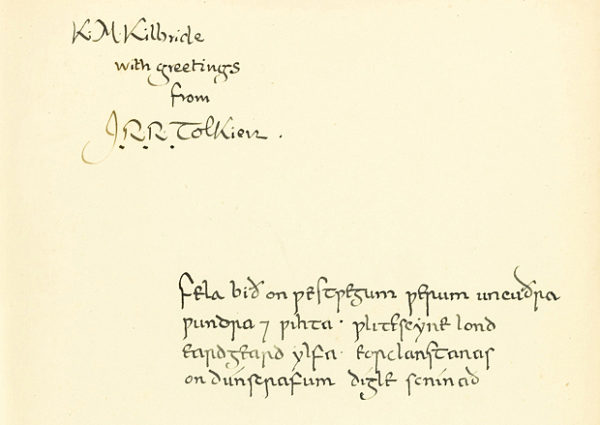 K. M. Kilbride
with greetings
from
J. R. R. Tolkien.
Fela bið on ƿestƿegum ƿerum uncuðra
ƿundra ⁊ ƿihta · ƿlitescyne lond
eardgeard ylfa · eorclanstanas
on dúnscrafum digle scinað